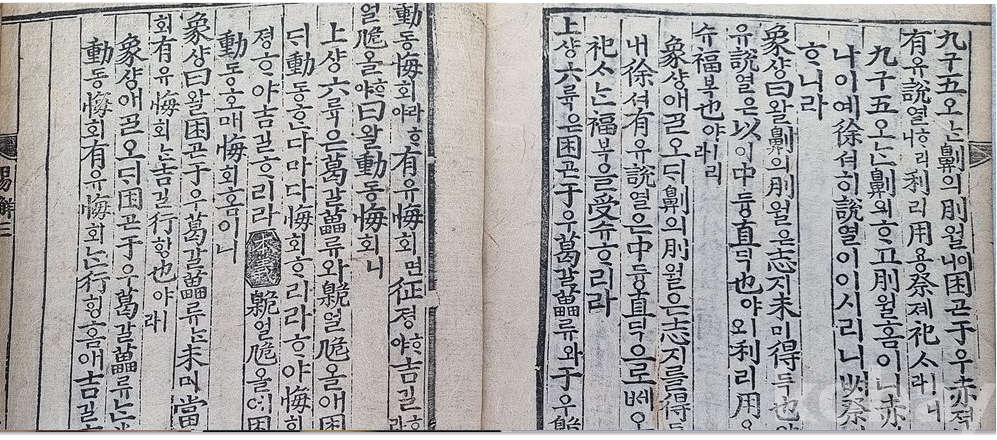 九구五오ᄂᆞᆫ劓의刖월이니困곤于우赤젹
有유說열ᄒᆞ리니利리用용祭졔祀ᄉᆞㅣ니라
九구五오ᄂᆞᆫ劓의ᄒᆞ고刖월홈이니赤
나이예徐셔히說열이이시리니ᄡᅥ祭
ᄒᆞ니라
象샹曰왈劓의刖월은志지未미得득也
有유說열은以이中듕直딕也야오利리用
슈福복也야ㅣ리라
象샹애ᄀᆞᆯ오ᄃᆡ劓의刖월은志지를得득
내徐셔有유說열은中듕直딕으로ᄡᅦ오
祀ᄉᆞᄂᆞᆫ福복을受슈ᄒᆞ리라
上샹六륙은困곤于우葛갈藟류와于우臲
動동悔회라ᄒᆞ야有유悔회면征졍ᄒᆞ야吉길ᄒᆞ
얼卼올ᄒᆞ야曰왈動동悔회니
上샹六륙은葛갈藟류와臲얼卼올애困
ᄃᆡ動동ᄒᆞᆫ다마다悔회ᄒᆞ리라ᄒᆞ야悔회
졍ᄒᆞ야吉길ᄒᆞ리라 本義 臲얼卼올애困
動동호매悔회홈이니
象샹曰왈困곤于우葛갈藟류ᄂᆞᆫ未미當
회有유悔회ᄂᆞᆫ吉길行ᄒᆡᆼ也야ㅣ라
象샹애ᄀᆞᆯ오ᄃᆡ困곤于우葛갈藟류ᄂᆞᆫ
動동悔회有유悔회ᄂᆞᆫ行ᄒᆡᆼ홈애吉길
易解三